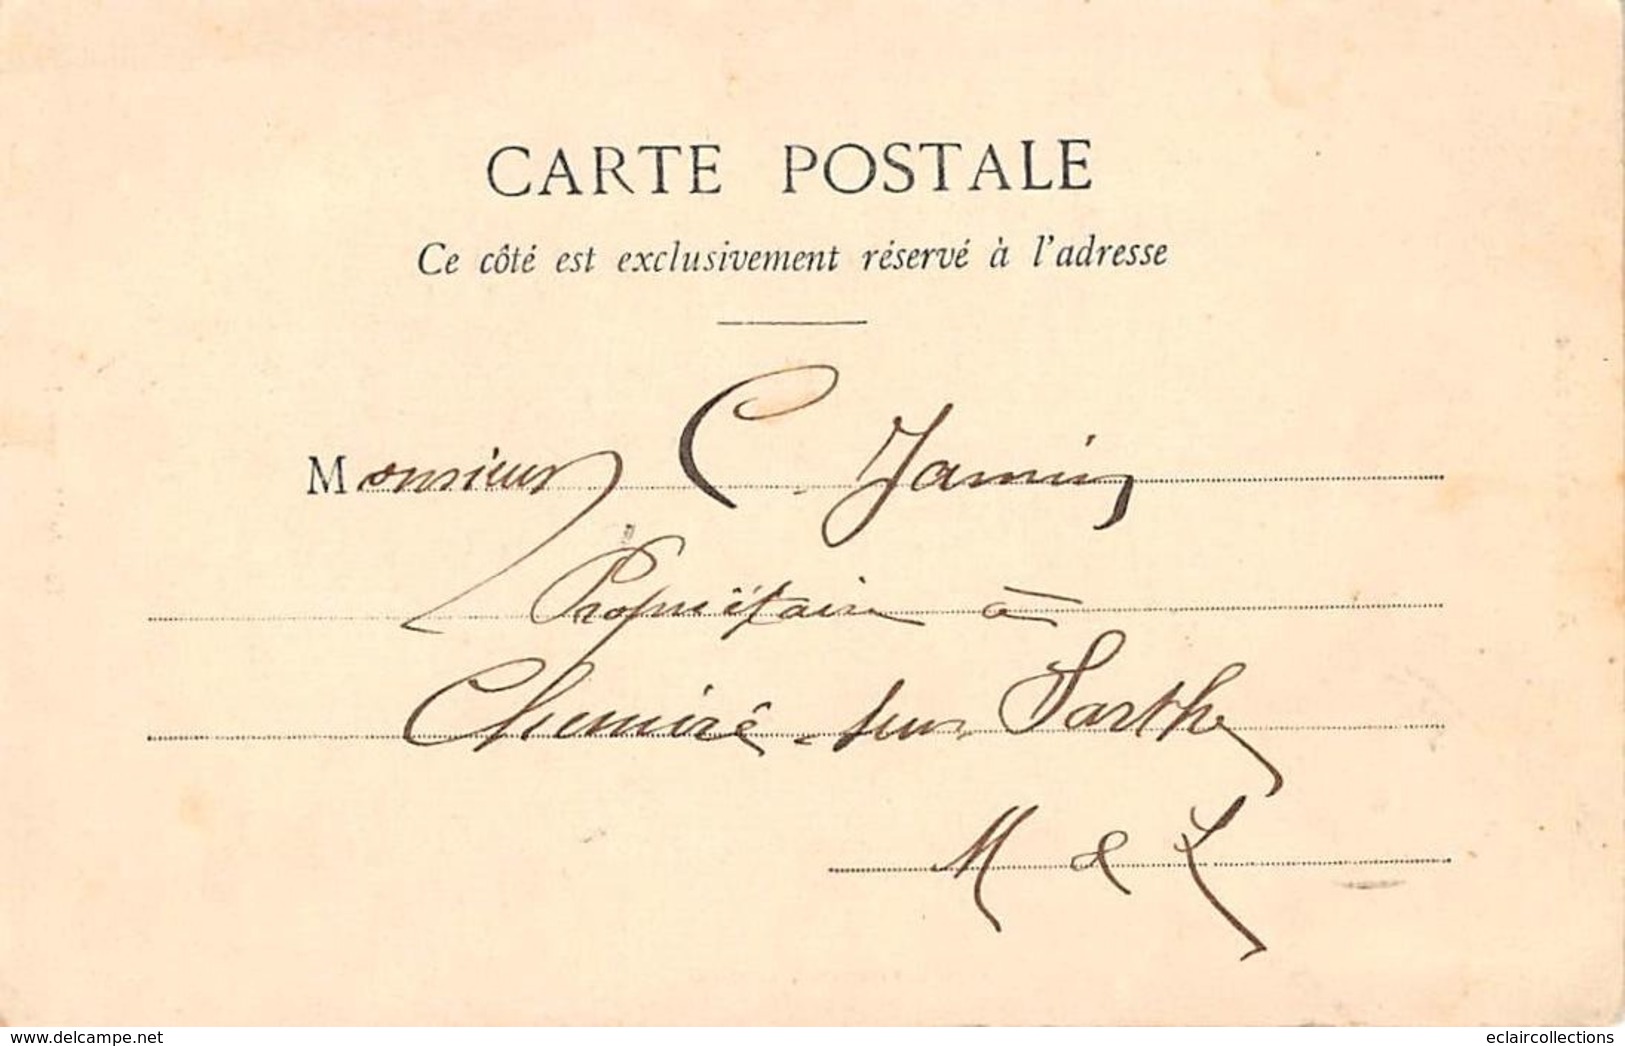 CARTE POSTALE
Ce côté est exclusivement réservé à l'adresse
Monsieur C. Jamin
Propriétaire à
Chemiré-sur-Sarthe
M & L
www.delcampe.net
eclaircollections